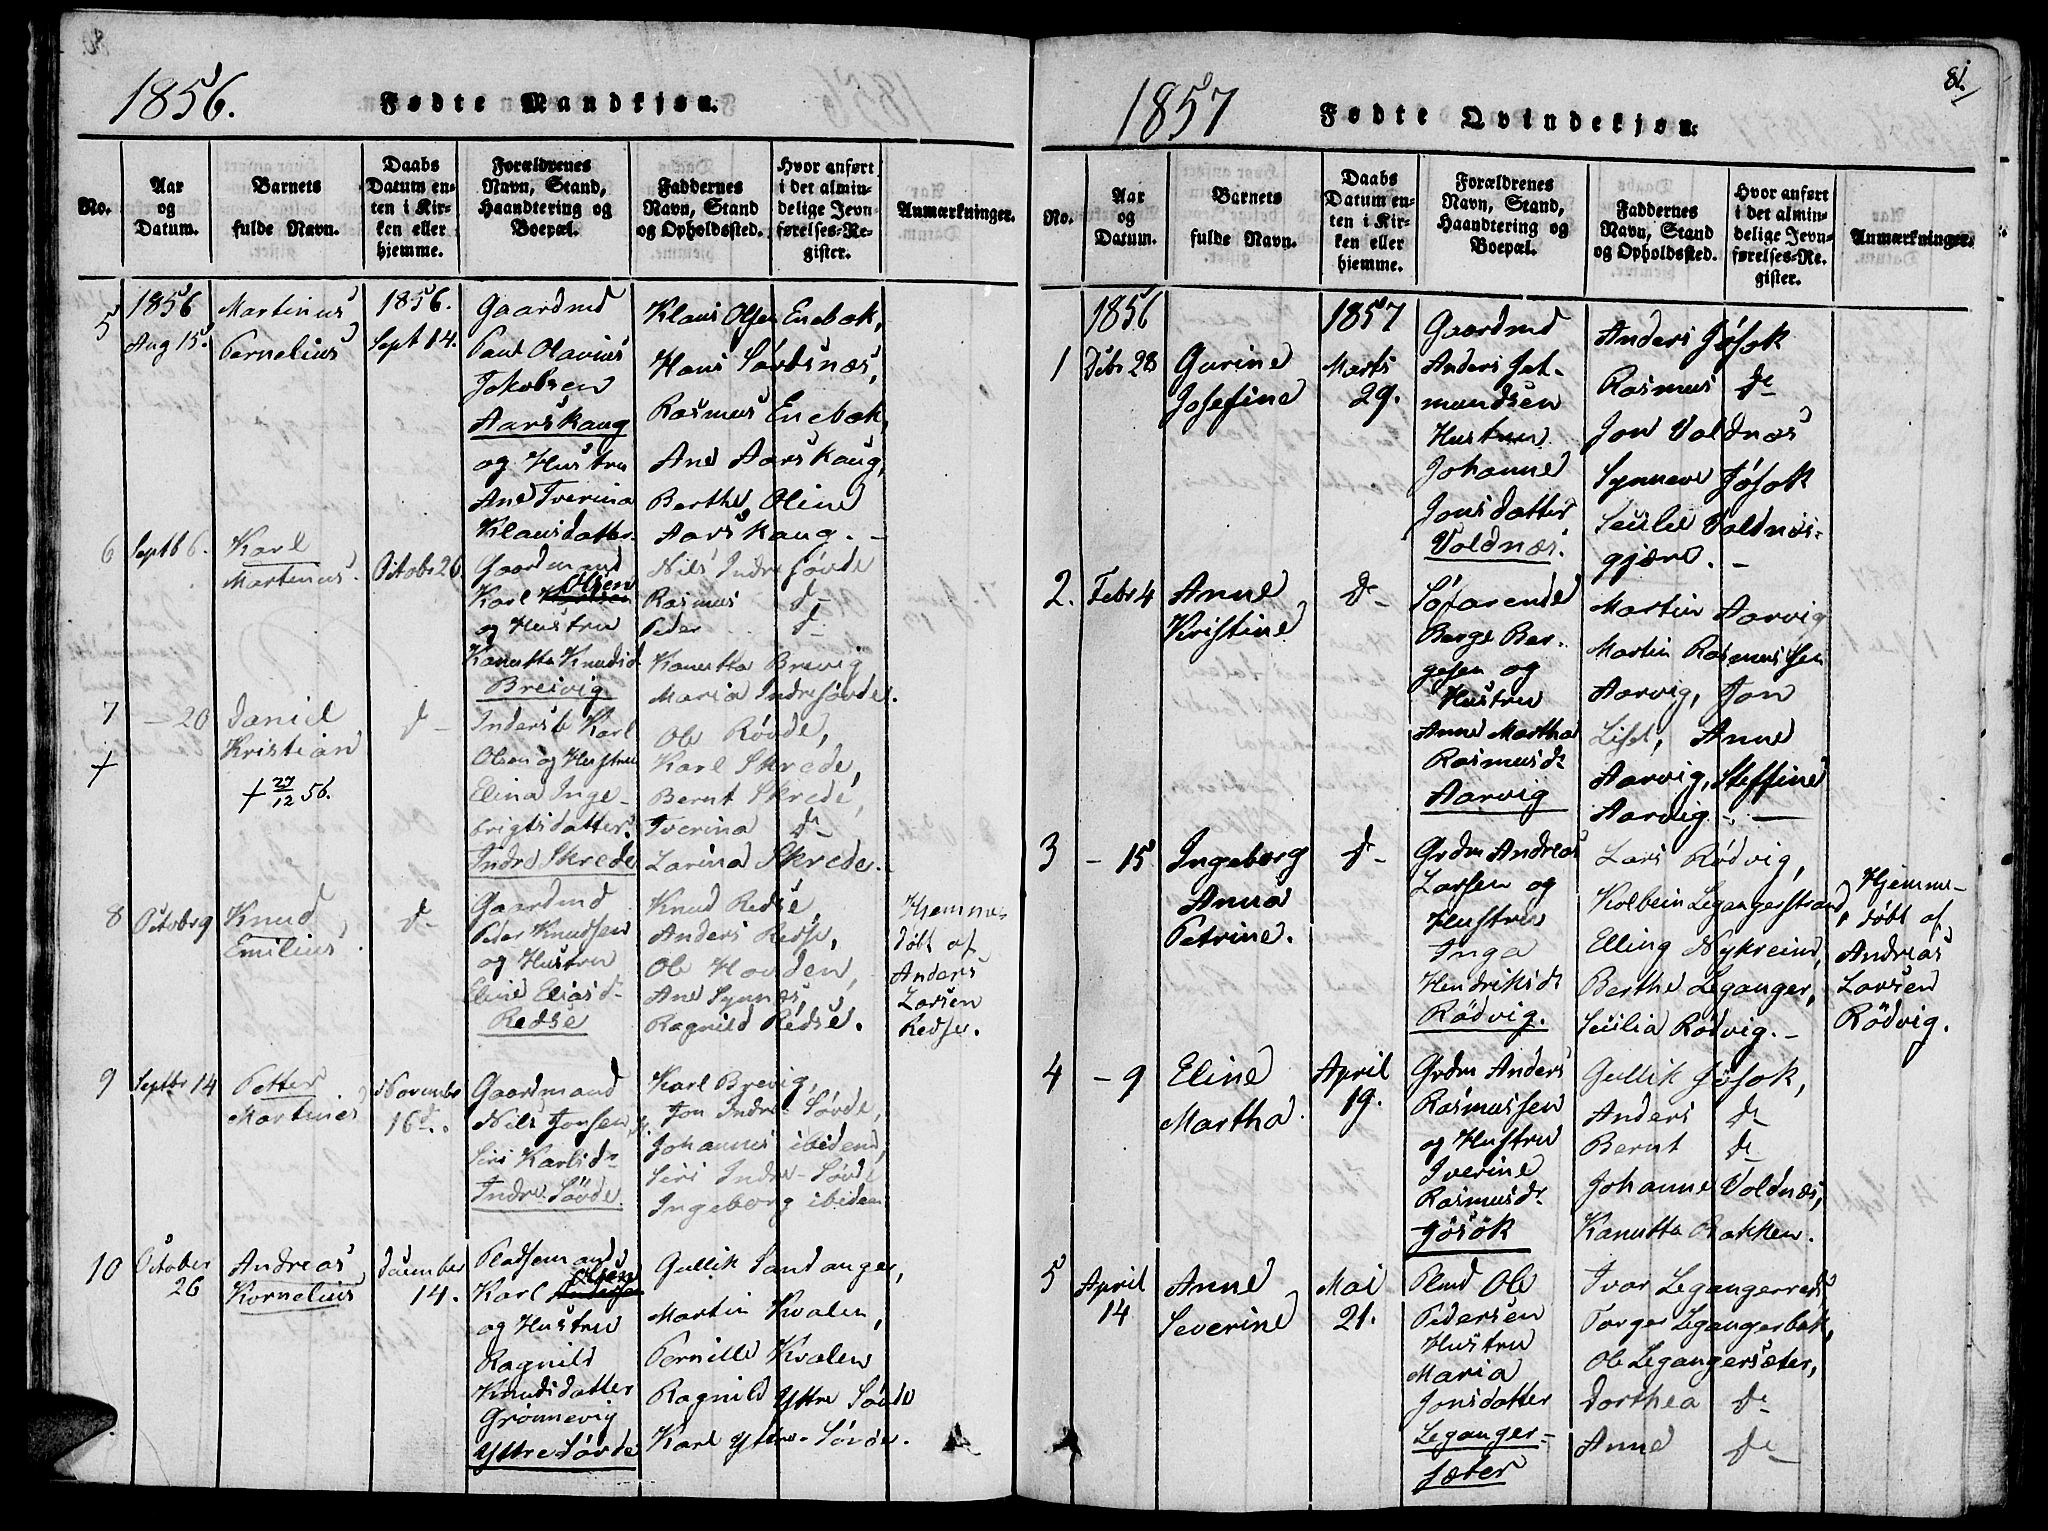 1856.
Fødte Mandkjøn.
No.
Aar
og
Datum.
Barnets
fulde Navn.
Daabs
Datum en-
ten i Kir-
ken eller
hjemme.
Forældrenes
Navn, Stand,
Haandtering og
Boepæl.
Faddernes
Navn, Stand
og Opholdssted.
Hvor anført
i det almin-
delige Jevn-
førelses-Re-
gister.
Anmærkninger.
5
1856
Aug 15.
Martinus
Pernelius
1856.
Sept 14.
Gaardmd
Paul Olavius
Jakobsen
Aarskaug
og Hustru
Ane Iverina
Klausdatter
Klaus Olsen Enebak,
Hans Sørdsnæs,
Rasmus Enebak,
Ane Aarskaug,
Berthe Oline
Aarskaug. -
6
Septb 6.
Karl
Martinus.
Octobr 26
Gaardmand
Karl Olsen
og Hustru
Kanutta Knudsd
Breivig
Nils Indre Søvde
Rasmus d-
Peder d-
Kanutta Brevig
Maria Indre Søvde.
7
+
- 20
Daniel
Kristian
+ 27/12 56.
d-
Inderste Karl
Olsen og Hustru
Elina Inge-
brigtsdatter.
Indre Skrede
Ole Røvde,
Karl Skrede,
Bernt Skrede,
Iverina d-
Larina Skrede.
8
Octobr 9
Knud
Emilius.
d-
Gaardmd
Peder Knudsen
og Hustru
Eline Eliasd-
Redse
Knud Redse,
Anders Redse,
Ole Hovden,
Ane Synnæs,
Ragnild Redse.
Hjemme-
døbt af
Anders
Larsen
Redse.
9
Septbr 14
Petter
Martines
Novembr
16d.
Gaardmand
Nils Jonsen,
Siri Karlsd-
Indre Søvde.
Karl Brevig,
Jon Indre-Søvde,
Johannes ibidem,
Siri Indre-Søvde
Ingeborg ibidem
10
October
26
Andreas
Kornelius
December
14.
Pladsemand
Karl Olsen
og Hustru
Ragnild
Knudsdatter
Grønnevig
Yttre Søvde
Gullik Sandanger,
Martin Kvalen,
Pernille Kvalen
Ragnild Yttre Søvde
Karl Yttre-Søvde.
81.
1857
Fødte Qvindekjøn.
No.
Aar
og
Datum.
Barnets
fulde Navn.
Daabs
Datum en-
ten i Kir-
ken eller
hjemme.
Forældrenes
Navn, Stand,
Haandtering og
Boepæl.
Faddernes
Navn, Stand
og Opholdssted.
Hvor anført
i det almin-
delige Jevn-
førelses-Re-
gister.
Anmærkninger.
1
1856
Debr 28
Gurine
Josefine
1857
Marts
29.
Gaardmd
Anders Jet-
mundsen
Hustru
Johanne
Jonsdatter
Voldnæs.
Anders Jøsok
Rasmus d-
Jon Voldnæs
Synneve Jøsok
Secilie Voldnæs-
gjære. -
2.
Febr 4
Anne
Kristine
d-
Berge Ber-
gesen og
Hustru
Anne Martha
Rasmusd-
Aarvig
Martin Aarvig
Martin Rasmussen
Aarvig, Jon
Liset, Anne
Aarvig, Steffine
Aarvig. -
3
- 15
Ingeborg
Anna
Petrine.
d-
Grdm Andreas
Larsen og
Hustru
Inga
Hendriksd-
Rødvig.
Lars Rødvig,
Kolbein Legangerstrand,
Elling Nykreim,
Berthe Leganger,
Secilia Rødvig. -
Hjemme-
døbt af
Andreas
Larsen
Rødvig.
4
- 9
Eline
Martha.
April
19.
Grdm Anders
Rasmussen
og Hustru
Iverine
Rasmusd-
Jøsøk
Gullik Jøsok,
Anders d-
Bernt d-
Johanne Voldnæs,
Kanutta Bakken.
5
April
14
Anne
Severine
Mai
21.
Plmd Ole
Pedersen
Hustru
Maria
Jonsdatter
Leganger-
sæter
Ivar Legangerreds
Torger Legangerbak,
Ole Legangersæter,
Dorthea d-
Anne d-